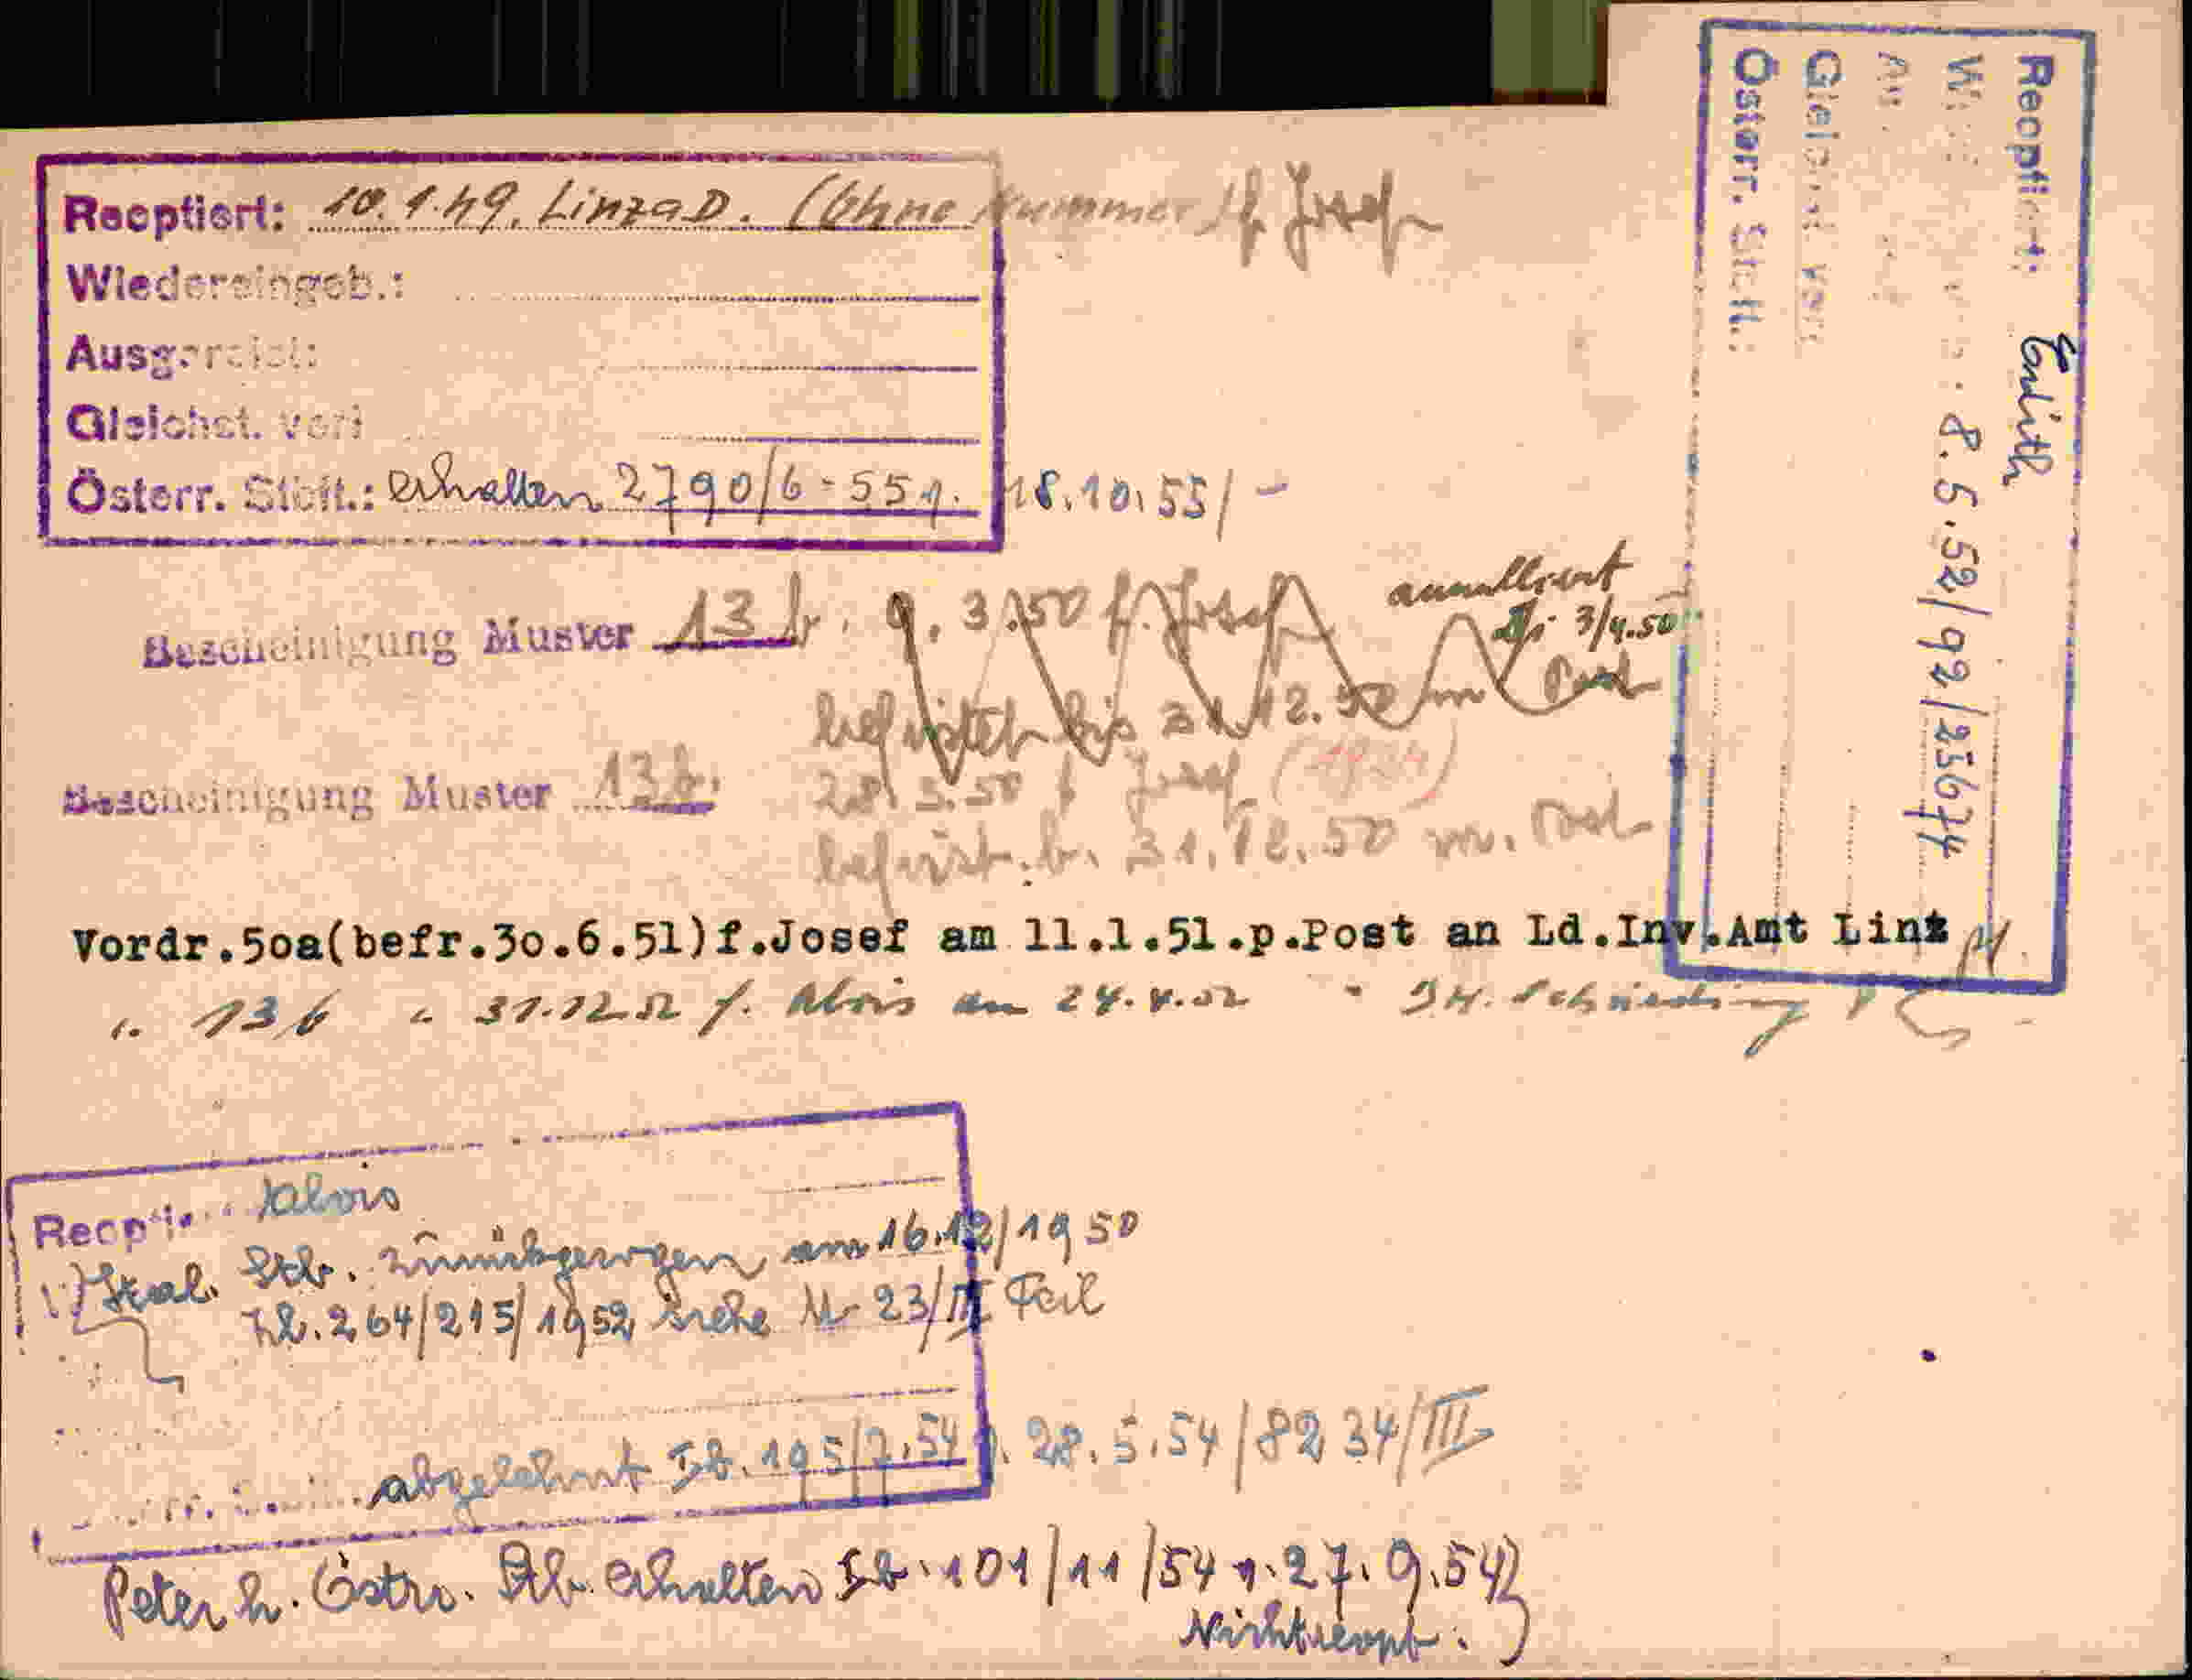 Reoptiert: 10.1.49. Linz a D. (Ohne Nummer) f. Josef
Wiedereingeb.:
Ausgereist:
Gleichst. verl
Österr. Stbft.: erhalten 2790/6-55 v. 18.10.55/-
Bescheinigung Muster 13 b. 9.3.50 f. Josef annulliert
3/4.50
befristet bis 31.12.50 m Post
Bescheinigung Muster 13 b. 28.3.50 f Josef
befrist. b. 31.12.50 m. Post
Vordr.5oa(befr.3o.6.51)f.Josef am 11.1.51.p.Post an Ld.Inv.Amt Linz
" 13 b " 31.12.52 f. Alois am 24.4.52 "
Reoptiert: Alois
Ital. Stb. zurückgezogen am 16.12/1950
Zl. 264/215/1952 siehe 23/III Teil
abgelehnt Zl. 195/7.54 v. 28.5.54/8234/III
Peter h. Östr. Stb. erhalten Zl. 101/11/54 v. 27.9.54)
Nichtreopt.
Reoptiert: Edith
8.5.52/92/25674
Gleichst. verl
Österr. Stbft.: